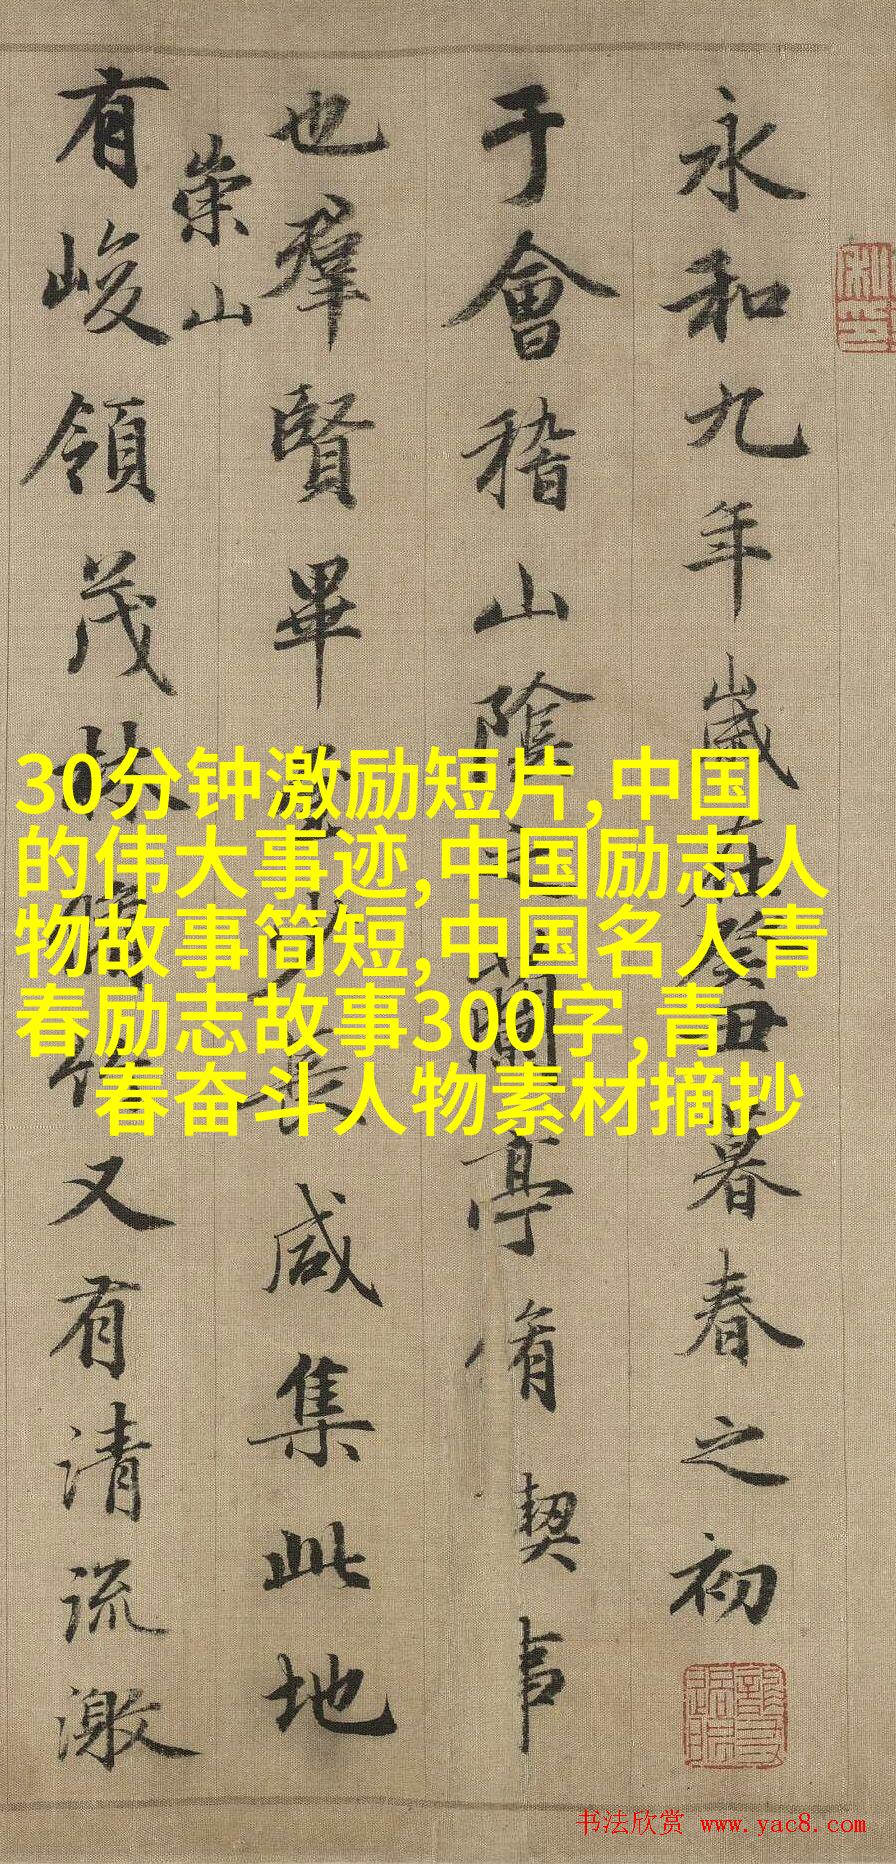 永和九年歲在癸丑暮春之初
于會稽山陰之蘭亭脩契事
也羣賢畢至少長咸集此地
崇山
有峻領茂林脩竹又有清流激
30分钟激励短片,中国
的伟大事迹,中国励志人
物故事简短,中国名人青
春励志故事300字,青
春奋斗人物素材摘抄
书法欣赏 www.yac8.com